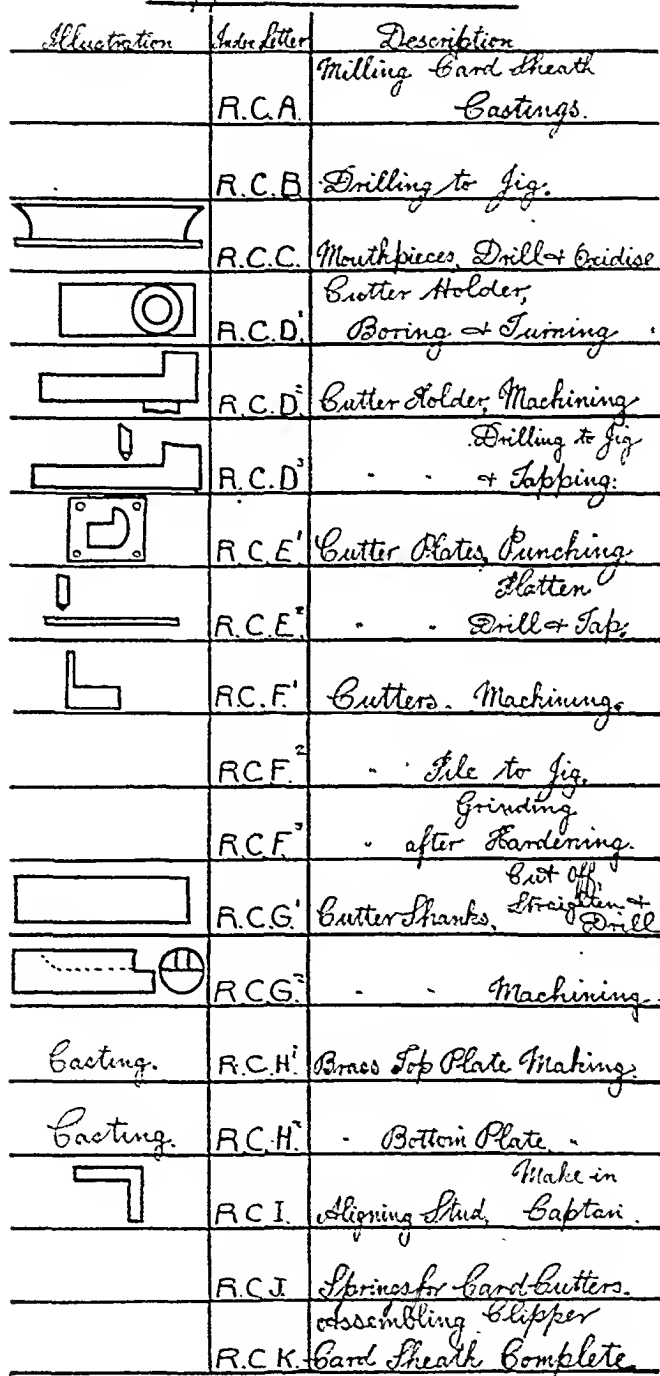 Illustration Index Letter Description
Milling Card Sheath
R.C.A. Castings.
R.C.B. Drilling to Jig.
R.C.C. Mouthpieces, Drill & Oxidise
Cutter Holder,
R.C.D.¹ Boring & Turning
R.C.D.² Cutter Holder, Machining
Drilling to Jig
R.C.D³ " " & Tapping.
R.C.E.¹ Cutter Plates, Punching
Flatten
R.C.E.² " " Drill & Tap.
R.C.F.¹ Cutters. Machining.
R.C.F.² " File to Jig.
Grinding
R.C.F.³ " after Hardening.
Cut off,
R.C.G.¹ Cutter Shanks, Straighten &
Drill
R.C.G.² " " Machining.
Casting. R.C.H.¹ Brass Top Plate Making.
Casting. R.C.H.² " Bottom Plate "
Make in
R.C.I. Aligning Stud, Captan.
R.C.J. Springs for Card Cutters.
Assembling Clipper
R.C.K. Card Sheath Complete